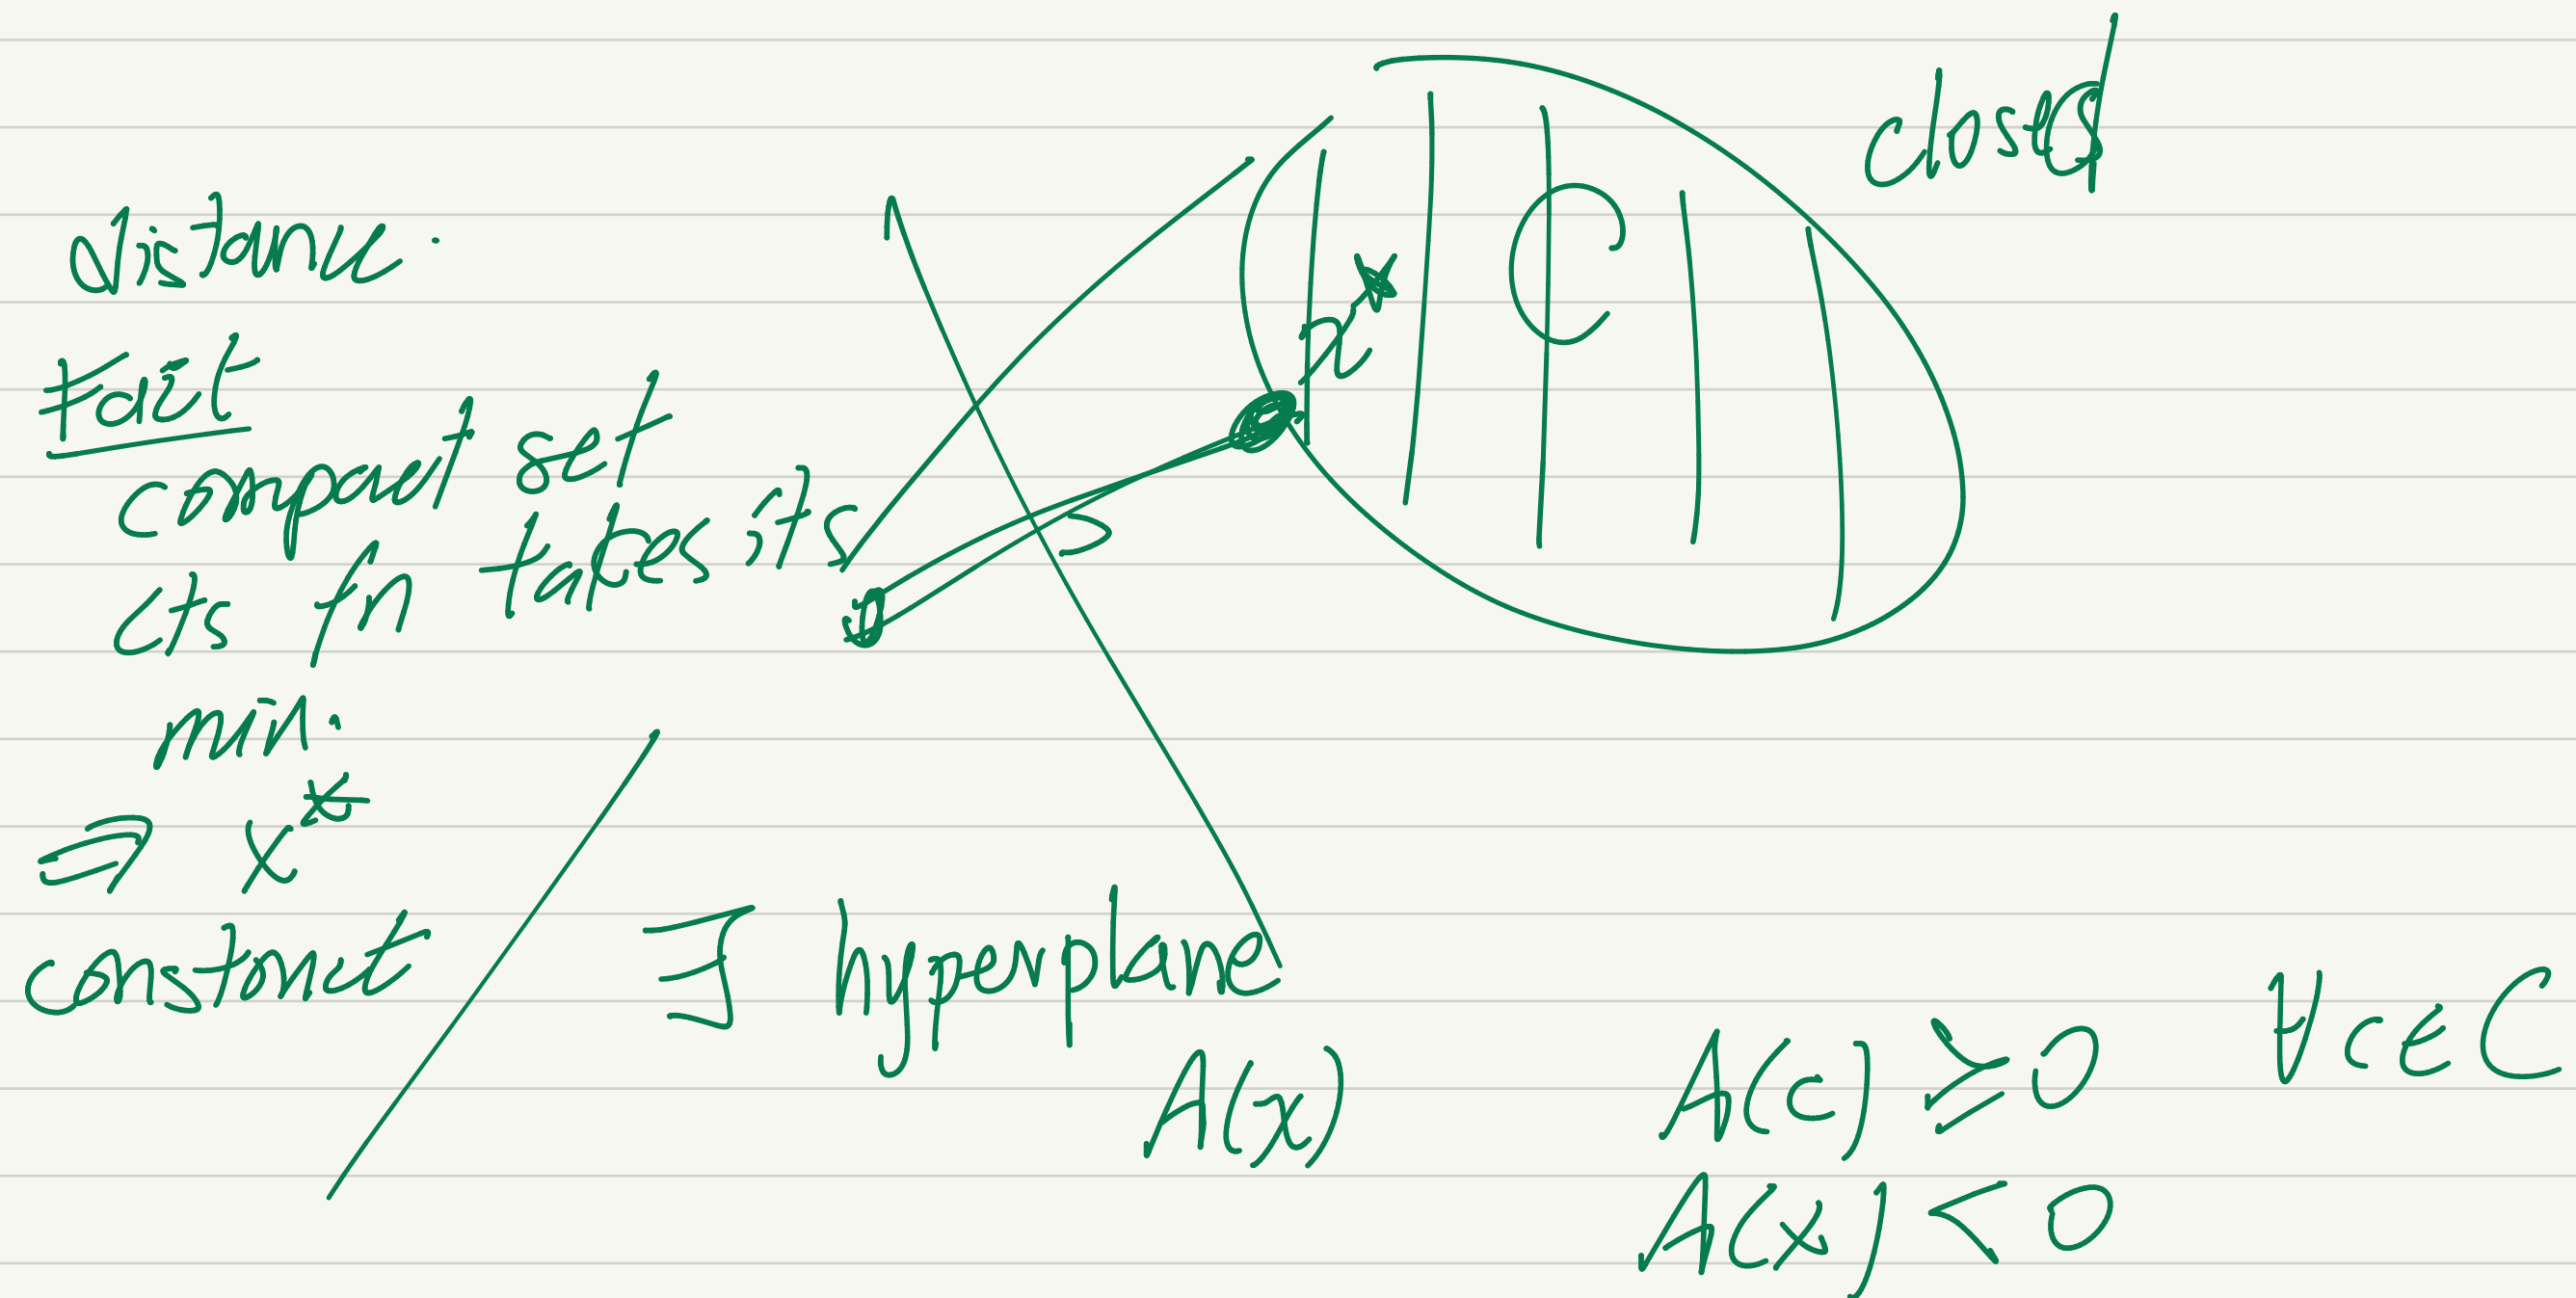 closed
distance.
Fact
C
x*
compact set
cts fn takes its
min.
⇒ x*
construct
∃ hyperplane
A(x)
A(c) ≥ 0 ∀ c ∈ C
A(x) < 0